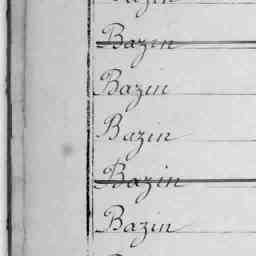 Bazin
Bazin
Bazin
Bazin
Bazin